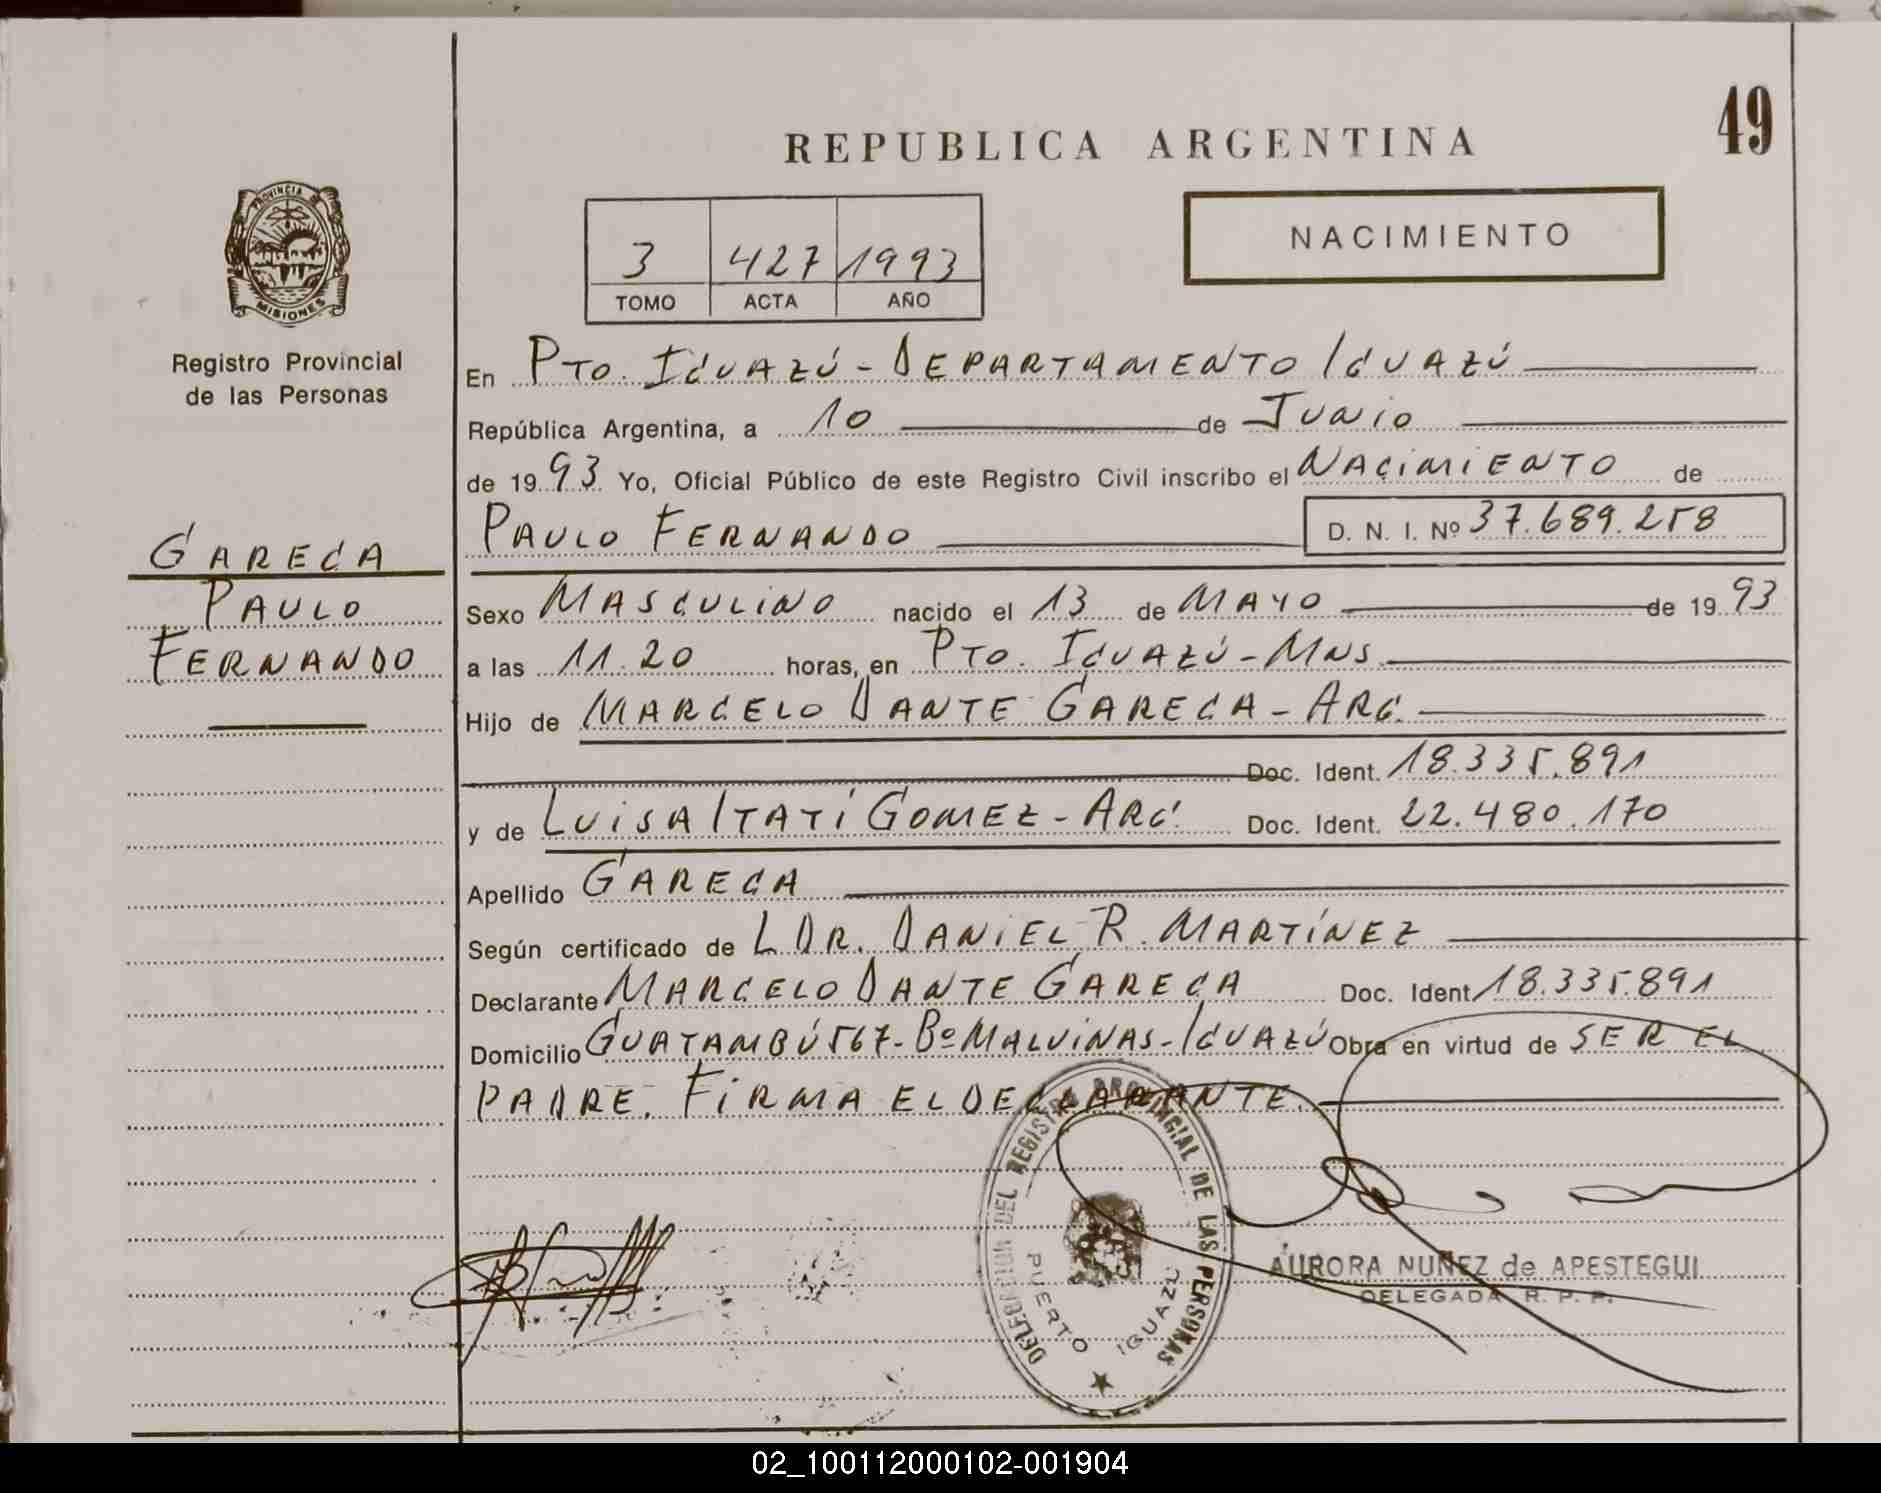 49
REPUBLICA ARGENTINA
PROVINCIA DE
MISIONES
Registro Provincial
de las Personas
3 427 1993
TOMO ACTA AÑO
NACIMIENTO
En PTO. IGUAZÚ - DEPARTAMENTO IGUAZÚ
República Argentina, a 10 de JUNIO
de 1993 Yo, Oficial Público de este Registro Civil inscribo el NACIMIENTO de
PAULO FERNANDO D. N. I. Nº 37.689.258
GARECA
PAULO
FERNANDO
Sexo MASCULINO nacido el 13 de MAYO de 1993
a las 11.20 horas, en PTO. IGUAZÚ - MNS.
Hijo de MARCELO DANTE GARECA - ARG.
Doc. Ident. 18.335.891
y de LUISA ITATÍ GOMEZ - ARG. Doc. Ident. 22.480.170
Apellido GARECA
Según certificado de L DR. DANIEL R. MARTÍNEZ
Declarante MARCELO DANTE GARECA Doc. Ident 18.335.891
Domicilio GUATAMBÚ 567 - Bº MALVINAS - IGUAZÚ Obra en virtud de SER EL
PADRE. FIRMA EL DECLARANTE.
DELEGACION DEL REGISTRO PROVINCIAL DE LAS PERSONAS
PUERTO IGUAZU
AURORA NUÑEZ de APESTEGUI
DELEGADA R. P. P.
02_100112000102-001904